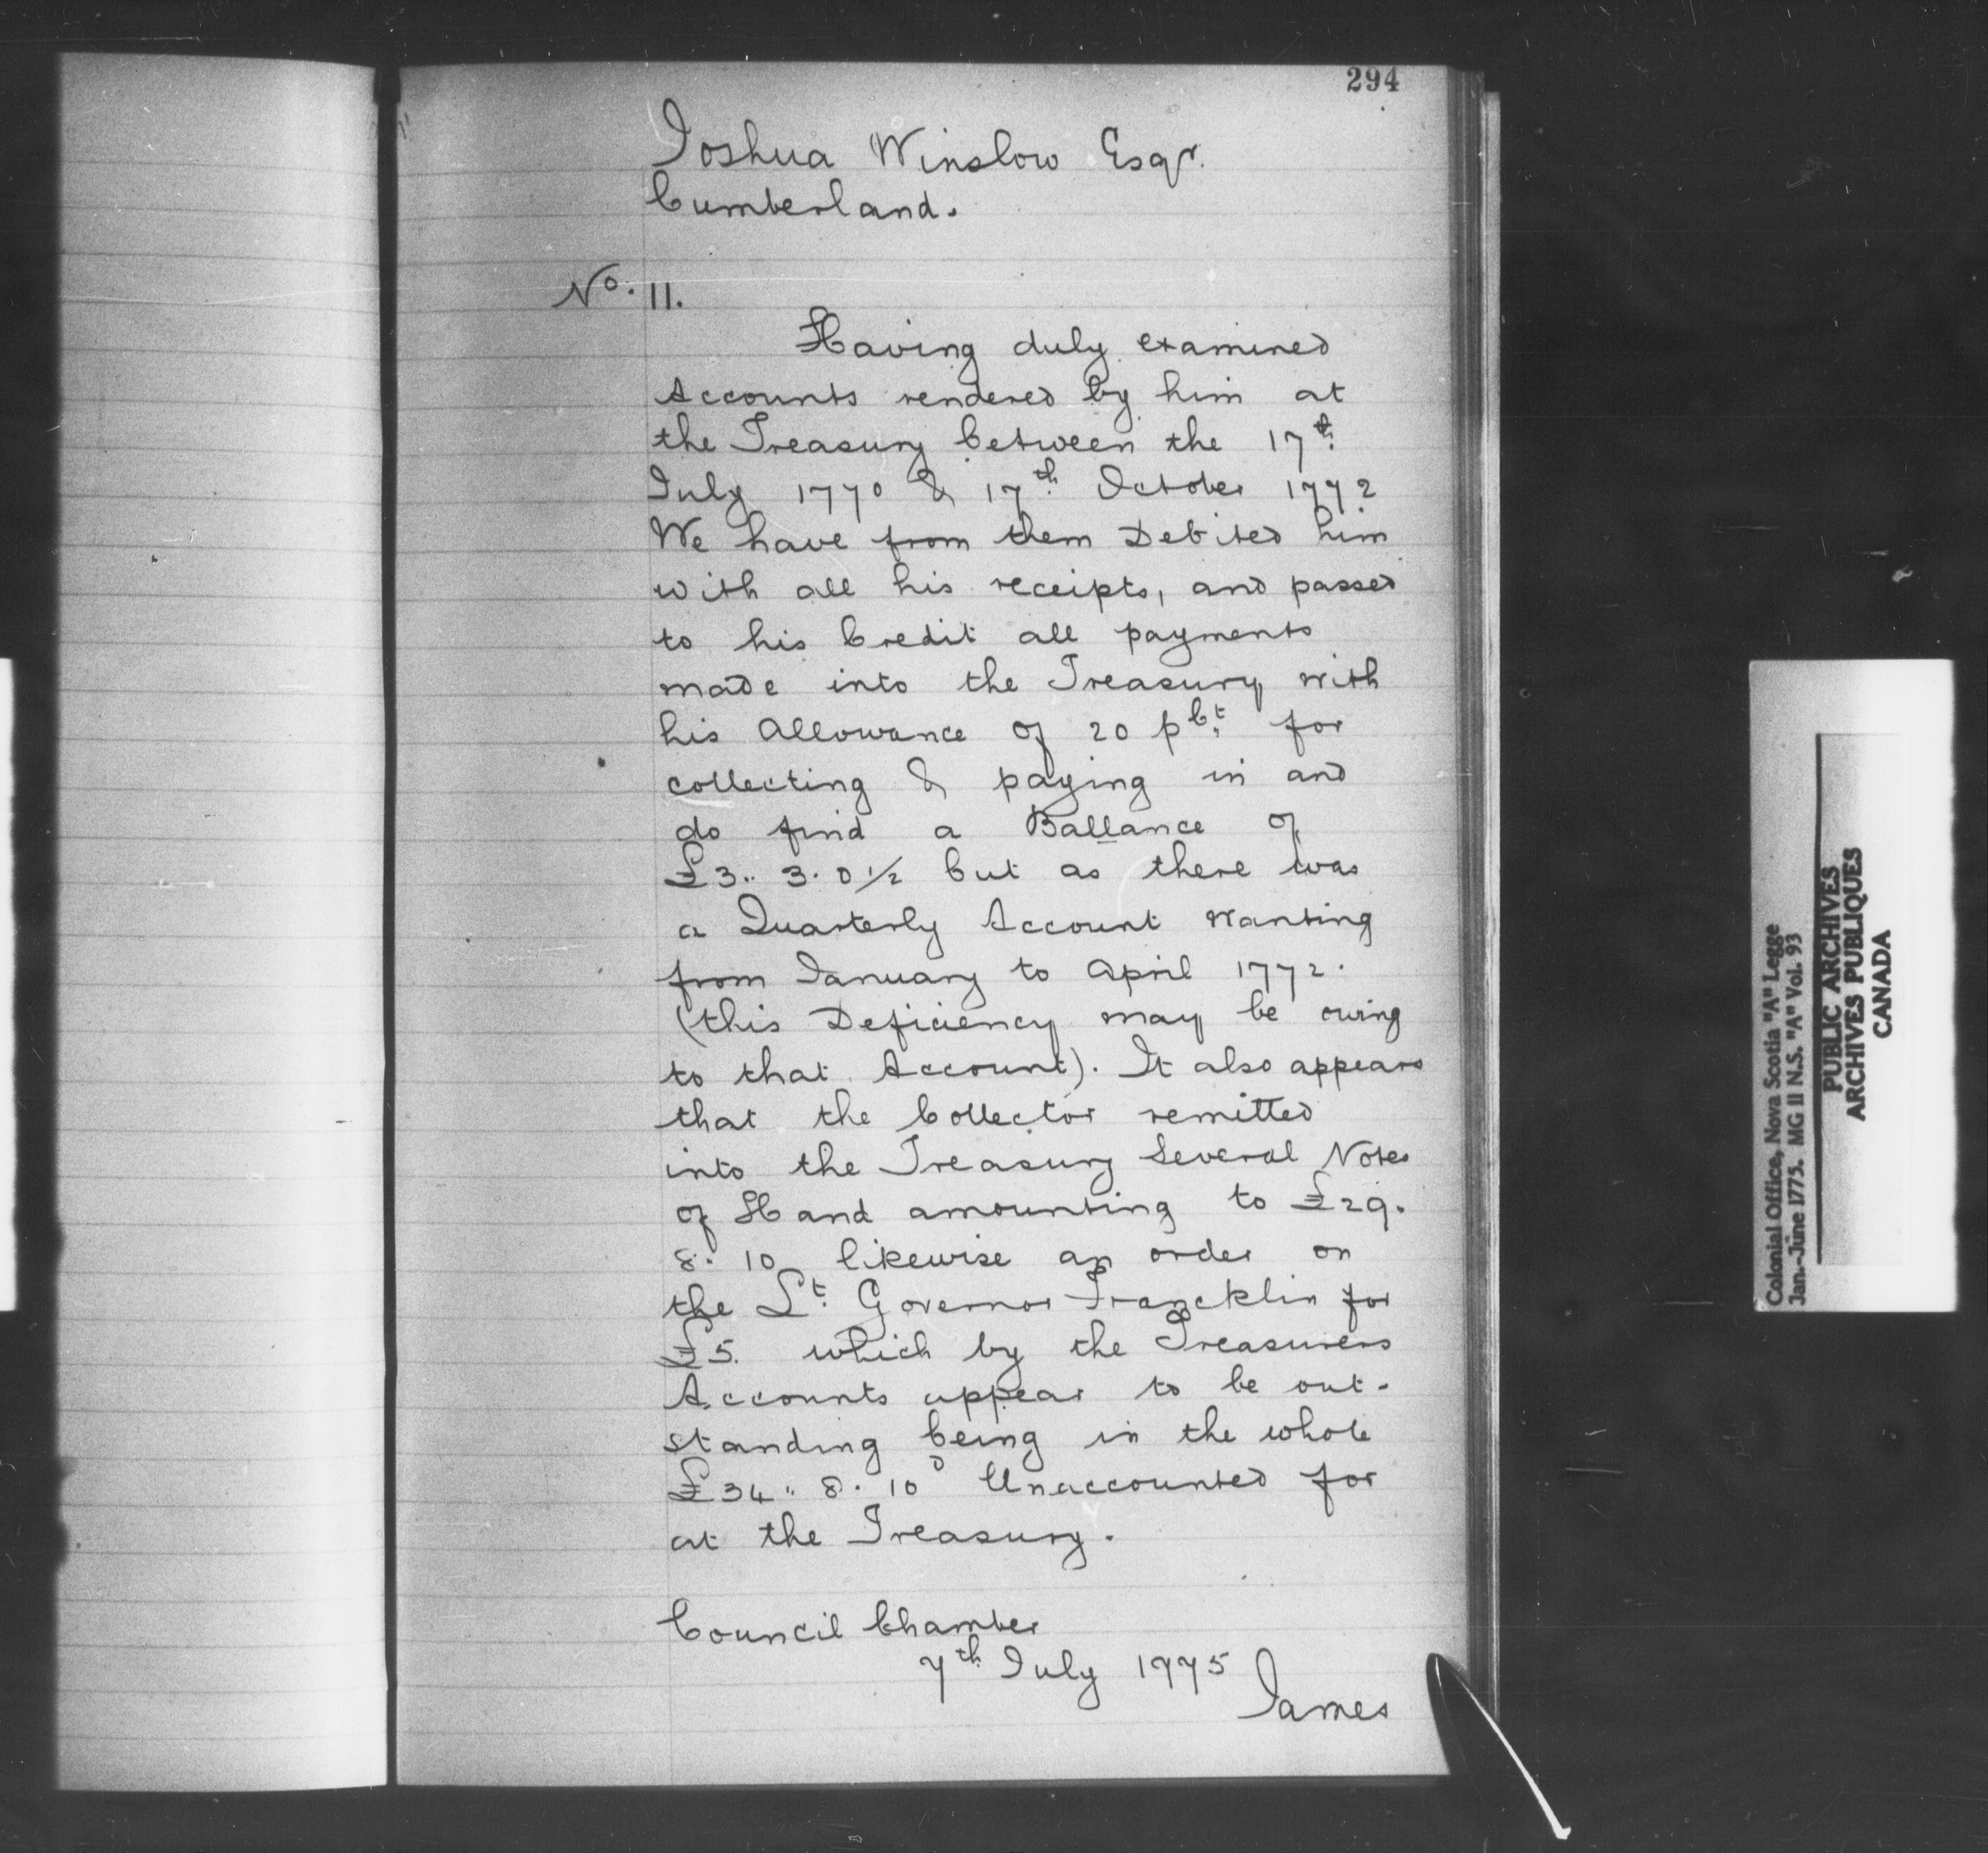 294
Joshua Winslow Esqr.
Cumberland.
No. 11.
Having duly examined
Accounts rendered by him at
the Treasury between the 17th
July 1770 & 17th October 1772
We have from them Debited him
with all his receipts, and passed
to his Credit all payments
made into the Treasury with
his Allowance of 20 pCt for
collecting & paying in and
do find a Ballance of
£3.. 3. 0 1/2 but as there was
a Quarterly Account wanting
from January to April 1772.
(this Deficiency may be owing
to that Account). It also appears
that the Collector remitted
into the Treasury Several Notes
of Hand amounting to £29.
8. 10 likewise an order on
the Lt. Governor Francklin for
£5. which by the Treasurers
Accounts appear to be out-
standing being in the whole
£34.. 8. 10D Unaccounted for
at the Treasury.
Council Chamber
7th July 1775
James
Colonial Office, Nova Scotia "A" Legge
Jan.-June 1775. MG 11 N.S. "A" Vol. 93
PUBLIC ARCHIVES
ARCHIVES PUBLIQUES
CANADA